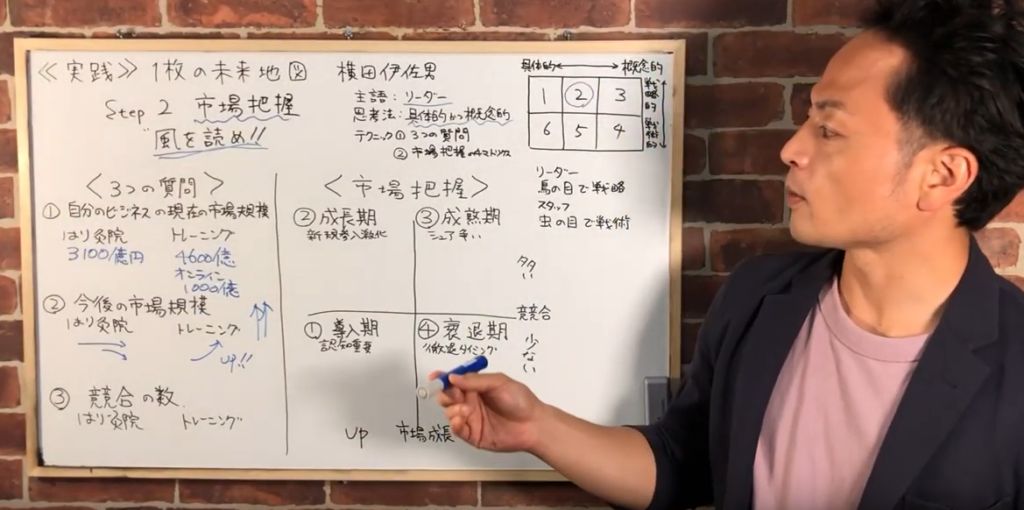 ≪実践≫ 1枚の未来地図 横田伊佐男
Step 2 市場把握
風を読め!!
主語：リーダー
思考法：具体的かつ概念的
テクニック① 3つの質問
② 市場把握の4マトリクス
具体的 ↔ 概念的
1 ② 3
6 5 4
戦略的
戦術的
リーダー
鳥の目で戦略
スタッフ
虫の目で戦術
＜3つの質問＞
① 自分のビジネスの現在の市場規模
はり灸院 トレーニング
3100億円 4600億
オンライン
1000億
② 今後の市場規模
はり灸院 トレーニング
up!!
③ 競合の数
はり灸院 トレーニング
＜市場把握＞
② 成長期 ③ 成熟期
新規参入激化 シェア争い
多い
競合
① 導入期 ④ 衰退期
認知重要 撤退タイミング
少ない
up 市場成長